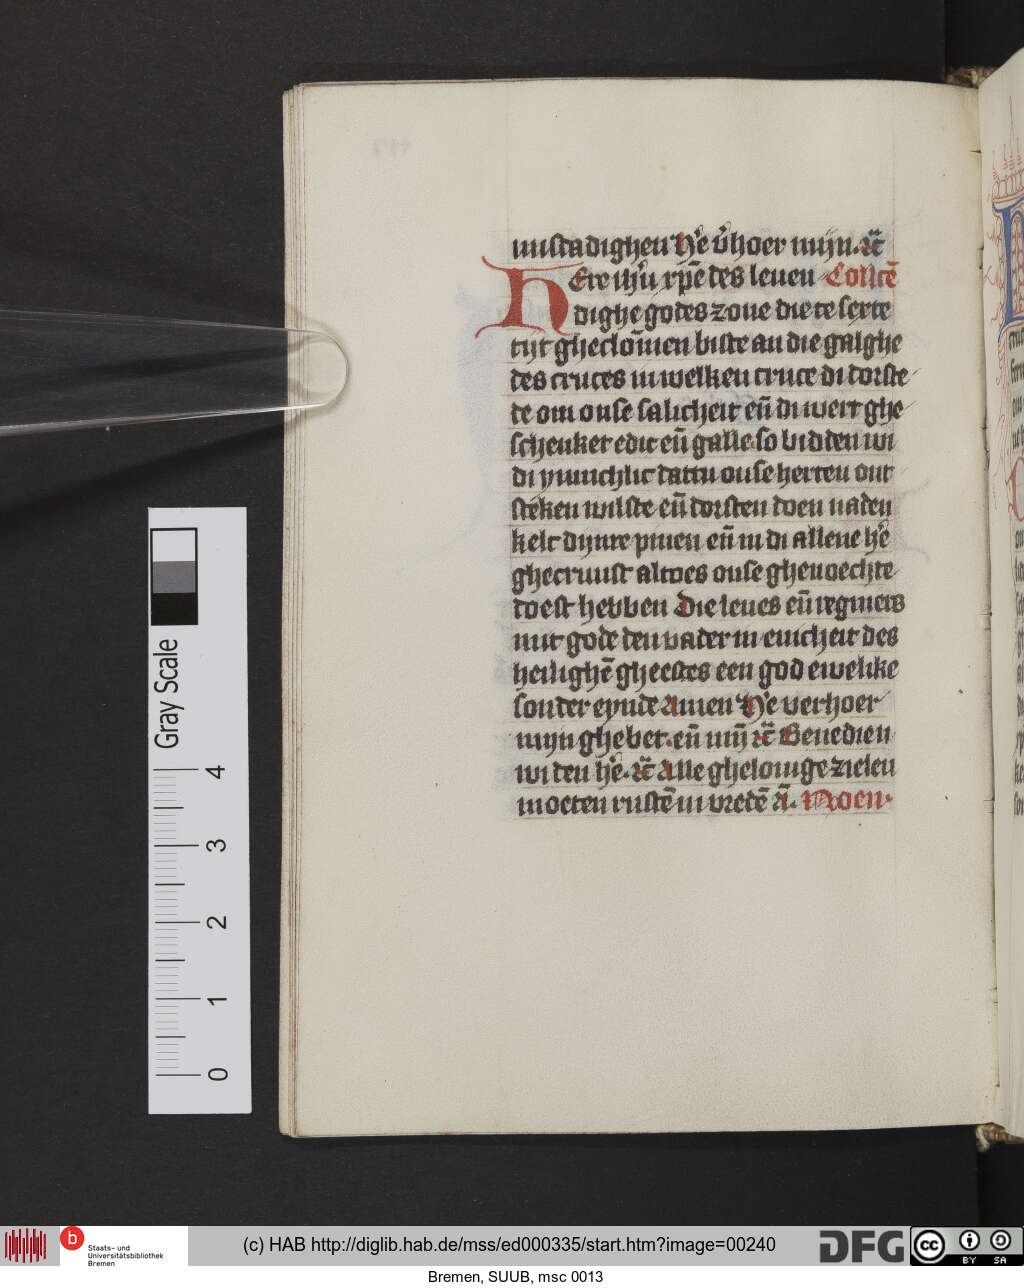 misdadighen He v̄hoer mijn. ⁊c̄
HEre ihū xp̄e des leuen Collect̄
dighe godes zone die te sexte
tijt gheclōmen biste an die galghe
des cruces in welken cruce di dorste
de om onse salicheit eñ di wert ghe
schenket edic eñ galle. so bidden wi
di ynnichlic dattu onse herten ont
steken wilste eñ dorsten doen naden
kelc dijnre pinen eñ in di allene hē
ghecruust altoes onse ghenoechte
toest hebben Die leues eñ regniers
mit gode den vader in enicheit des
heilighē gheestes een god ewelike
sonder eynde Amen He verhoer
mijn ghebet. eñ mij̄ ⁊c̄ Benedien
wi den hē. ⁊c̄ Alle ghelouige zielen
moeten rustē in vredē ā. Noen.
Gray Scale
4
3
2
1
0
b Staats- und
Universitätsbibliothek
Bremen
(c) HAB http://diglib.hab.de/mss/ed000335/start.htm?image=00240
DFG
cc BY SA
Bremen, SUUB, msc 0013